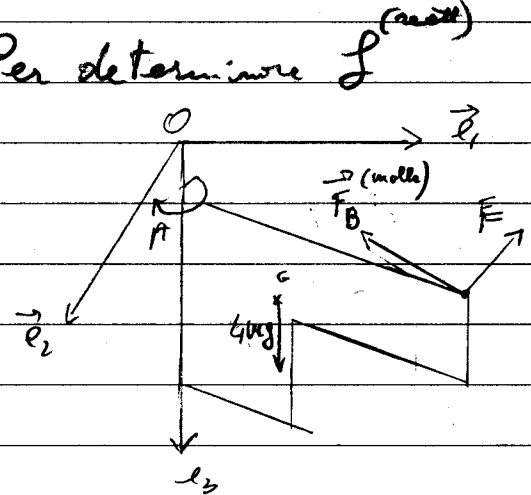 Per determinare L (reatt)
O
e₁
F_B (molle)
F
A
G
4mg
e₂
e₃